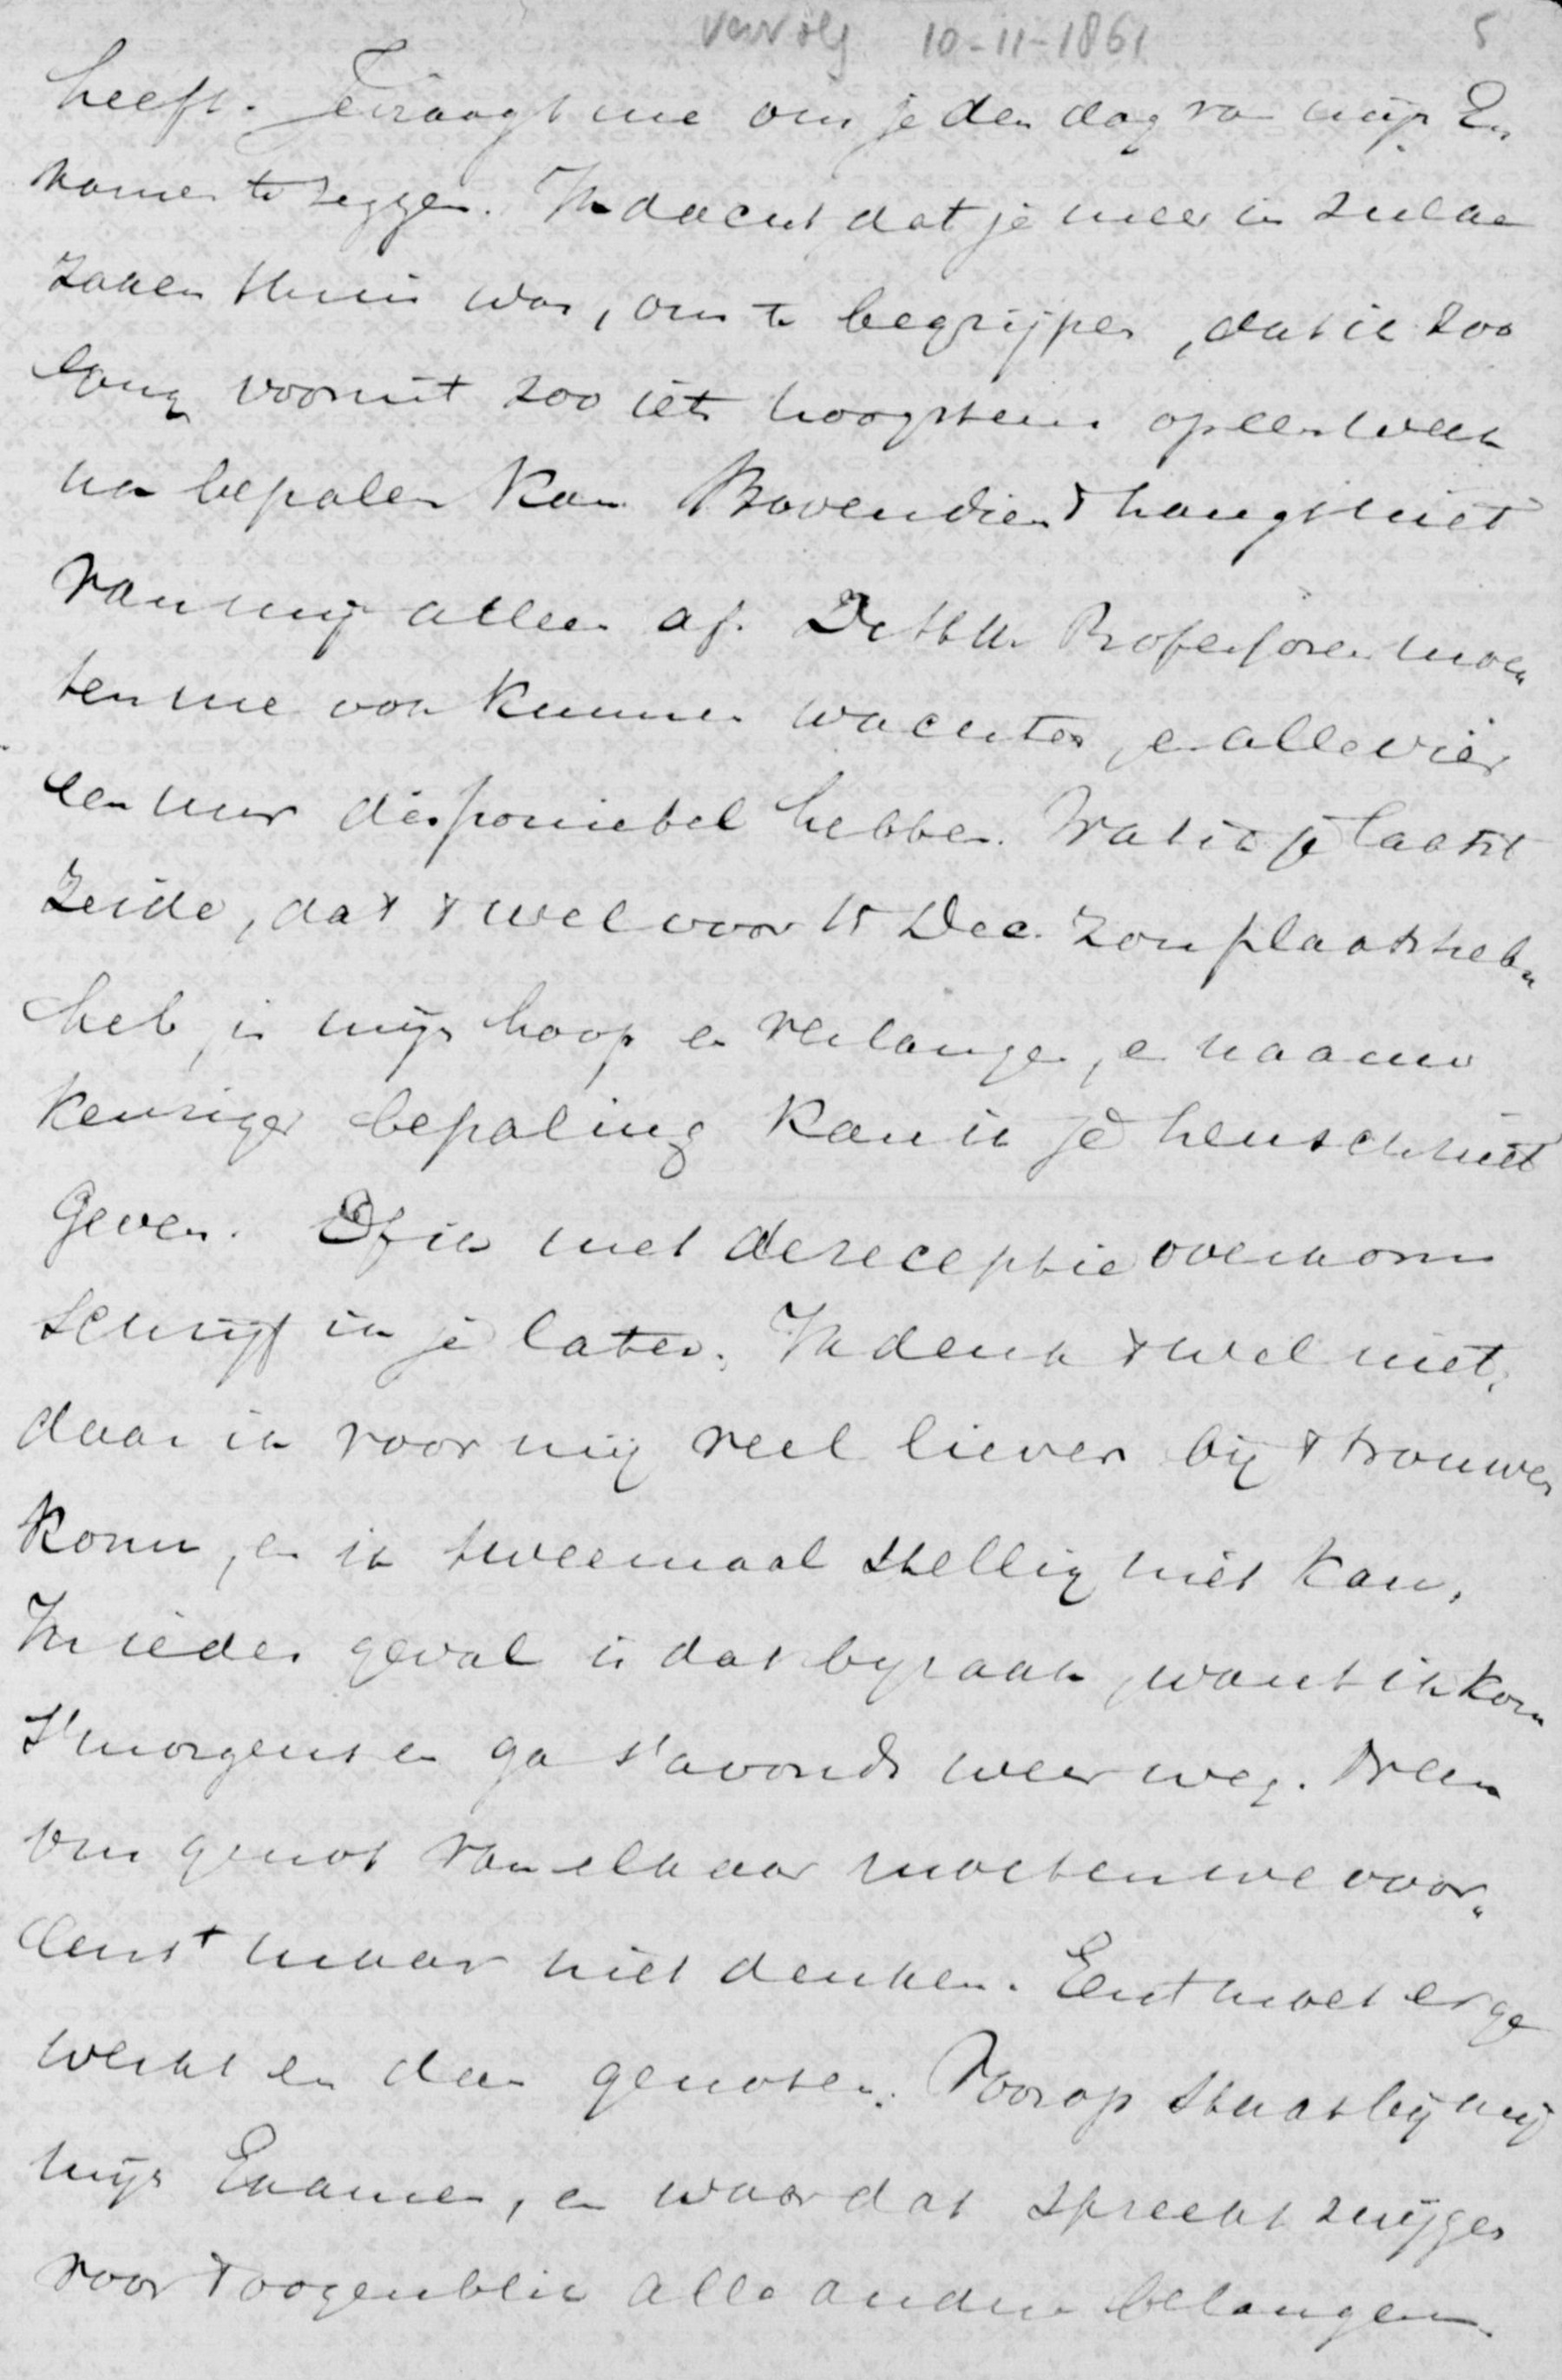 vervolg 10-11-1861 5
heeft. Je vraagt me om je den dag van mijn Ex
kamen te zeggen. Ik dacht dat je meer in zulke
zaken thuis was, om te begrijpen, dat ik zoo
lang vooruit zoo iets hoogstens op een week
na bepalen kan. Bovendien 't hangt niet
van mij alleen af. De HH. Professoren moe„
ten me ook kunnen wachten, en alle vier
een uur disponiebel hebben. Wat ik je laatst
zeide, dat 't wel voor 15 Dec. zou plaats heb„
heb, is mijn hoop en verlangen, en naauw
keuriger bepaling kan ik je heusch niet
geven. Of ik met de receptie overkom
schrijf ik je later. Ik denk 't wel niet,
daar ik voor mij veel liever bij 't trouwen
kom, en ik tweemaal stellig niet kan.
In ieder geval is dat bijzaak, want ik kom
s'morgens en ga s'avonds weer weg. Aan
om genot van elkaar moeten we voor„
eerst maar niet denken. Eerst moet er ge
werkt en dan genoten. Voorop staat bij mij
mijn Examen, en waar dat spreekt zwijgen
voor 't oogenblik alle andere belangen.